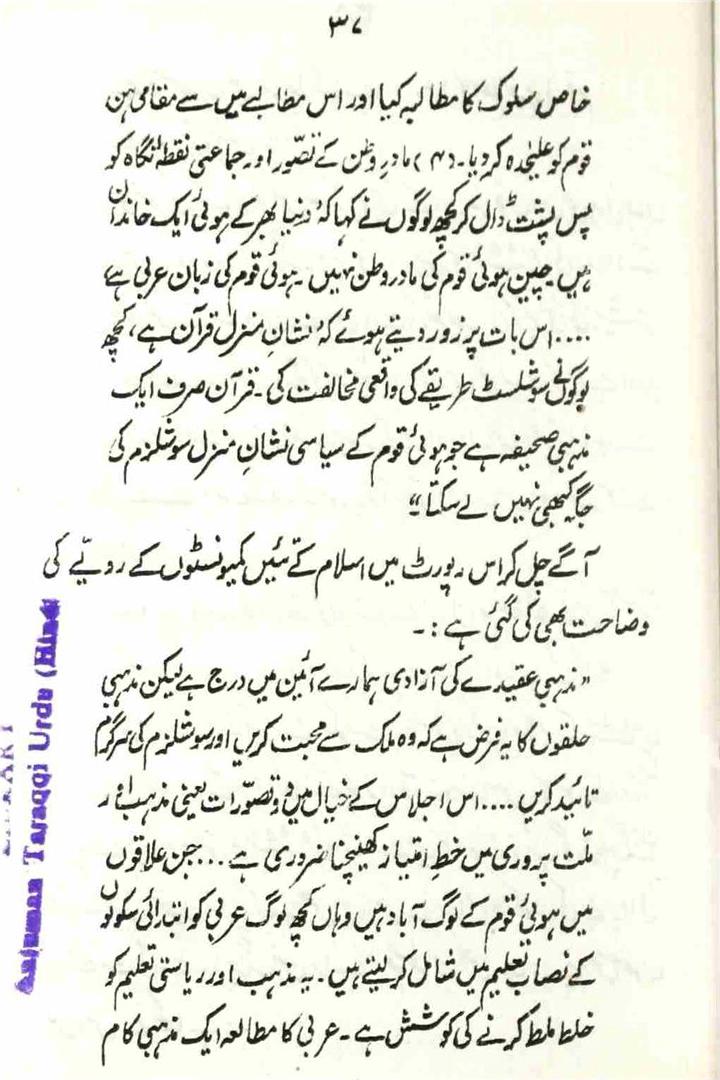 ۳۷
خاص سلوک کا مطالبہ کیا اور اس مطالبے میں سے مقامی ہن
قوم کو علیحدہ کر دیا۔ (۴) مادر وطن کے تصّور اور جماعتی نقطۂ نگاہ کو
پس پشت ڈال کر کچھ لوگوں نے کہا کہ دنیا بھر کے ہوئی ایک خاندان
ہیں چین ہوئی قوم کی مادر وطن نہیں۔ ہوئی قوم کی زبان عربی ہے،
.... اس بات پر زور دیتے ہوئے کہ نشانِ منزل قرآن ہے، کچھ
لوگوں نے سوشلسٹ طریقے کی واقعی مخالفت کی۔ قرآن صرف ایک
مذہبی صحیفہ ہے جو ہوئی قوم کے سیاسی نشانِ منزل سوشلزم کی
جگہ کبھی نہیں لے سکتا"
آگے چل کر اس رپورٹ میں اسلام کے تئیں کمیونسٹوں کے رویّے کی
وضاحت بھی کی گئی ہے :۔
"مذہبی عقیدے کی آزادی ہمارے آئین میں درج ہے لیکن مذہبی
حلقوں کا یہ فرض ہے کہ وہ ملک سے محبت کریں اور سوشلزم کی سرگرم
تائید کریں .... اس اجلاس کے خیال میں دو تصّورات یعنی مذہب اور
ملّت پروری میں خطِ امتیاز کھینچنا ضروری ہے ... جن علاقوں
میں ہوئی قوم کے لوگ آباد ہیں وہاں کچھ لوگ عربی کو ابتدائی سکولوں
کے نصاب تعلیم میں شامل کر لیتے ہیں۔ یہ مذہب اور ریاستی تعلیم کو
خلط ملط کرنے کی کوشش ہے۔ عربی کا مطالعہ ایک مذہبی کام
Anjuman Taraqqi Urdu (Hind)